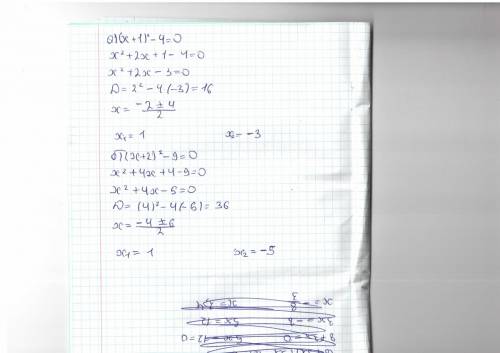 а) (x+1)² - 4 = 0
x² + 2x + 1 - 4 = 0
x² + 2x - 3 = 0
D = 2² - 4·(-3) = 16
x = (-2 ± 4)/2
x₁ = 1 x₂ = -3
б) (x+2)² - 9 = 0
x² + 4x + 4 - 9 = 0
x² + 4x - 5 = 0
D = (4)² - 4(-5) = 36
x = (-4 ± 6)/2
x₁ = 1 x₂ = -5